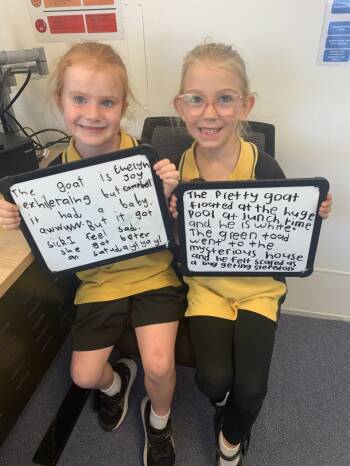 The goat is Evelyn
exhilerating but Joy campbell
it had a baby.
awwww. But it got
sick. I feel sad.
she got better
on satuday! yay!
The Pretty goat
floated at the huge
Pool at lunch time
and he is white.
The green toad
went to the
mysterious house
and he felt scared as
a bug geting steped on